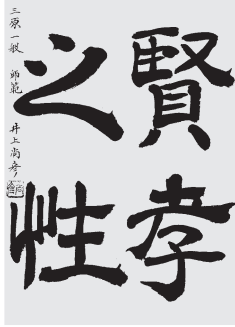 賢孝
之性
三原一般 師範 井上尚孝